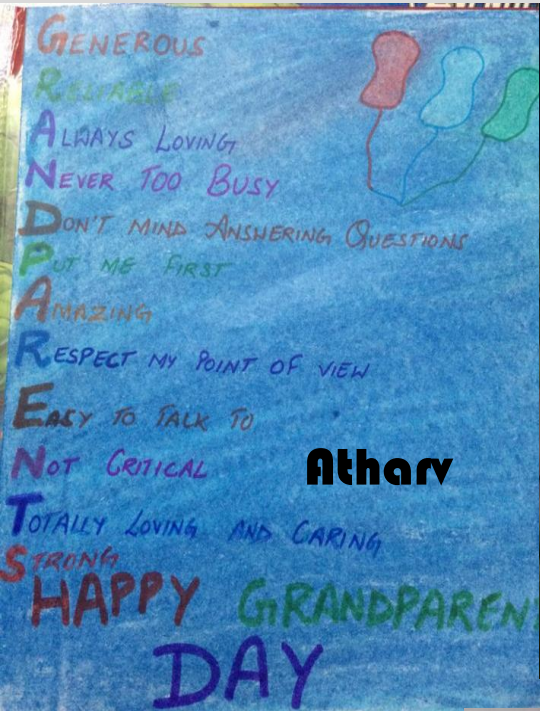 GENEROUS
RELIABLE
ALWAYS LOVING
NEVER TOO BUSY
DON'T MIND ANSWERING QUESTIONS
PUT ME FIRST
AMAZING
RESPECT MY POINT OF VIEW
EASY TO TALK TO
NOT CRITICAL
Atharv
TOTALLY LOVING AND CARING
STRONG
HAPPY GRANDPAREN
DAY